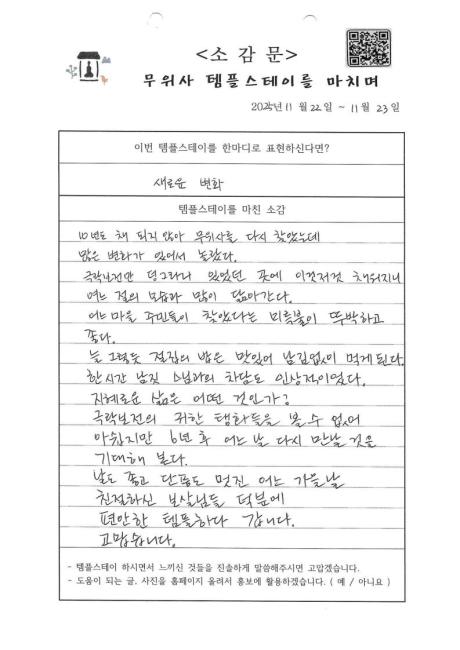 <소감문>
무위사 템플스테이를 마치며
2025년 11월 22일 ~ 11월 23일
이번 템플스테이를 한마디로 표현하신다면?
새로운 변화
템플스테이를 마친 소감
10년도 채 되지 않아 무위사를 다시 찾았는데
많은 변화가 있어서 놀랐다.
극락보전만 덩그러니 있었던 곳에 이것저것 채워지니
여느 절의 모습과 많이 닮아간다.
어느 마을 주민들이 찾았다는 미륵불이 뚜박하고
좋다.
늘 그렇듯 절집의 밥은 맛있어 남김없이 먹게 된다.
한시간 남짓 스님과의 차담도 인상적이었다.
지혜로운 삶은 어떤 것인가?
극락보전의 귀한 탱화들을 볼 수 없어
아쉽지만 6년 후 어느 날 다시 만날 것을
기대해 본다.
날도 좋고 단풍도 멋진 어느 가을날
친절하신 보살님들 덕분에
편안한 템플하다 갑니다.
고맙습니다.
- 템플스테이 하시면서 느끼신 것들을 진솔하게 말씀해주시면 고맙겠습니다.
- 도움이 되는 글, 사진을 홈페이지 올려서 홍보에 활용하겠습니다. ( 예 / 아니요 )